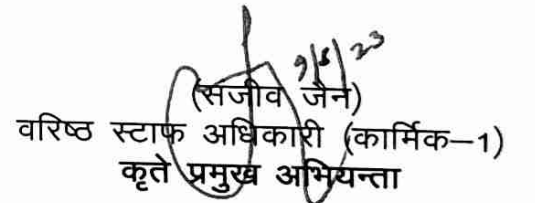 9/5/23
(संजीव जैन)
वरिष्ठ स्टाफ अधिकारी (कार्मिक–1)
कृते प्रमुख अभियन्ता